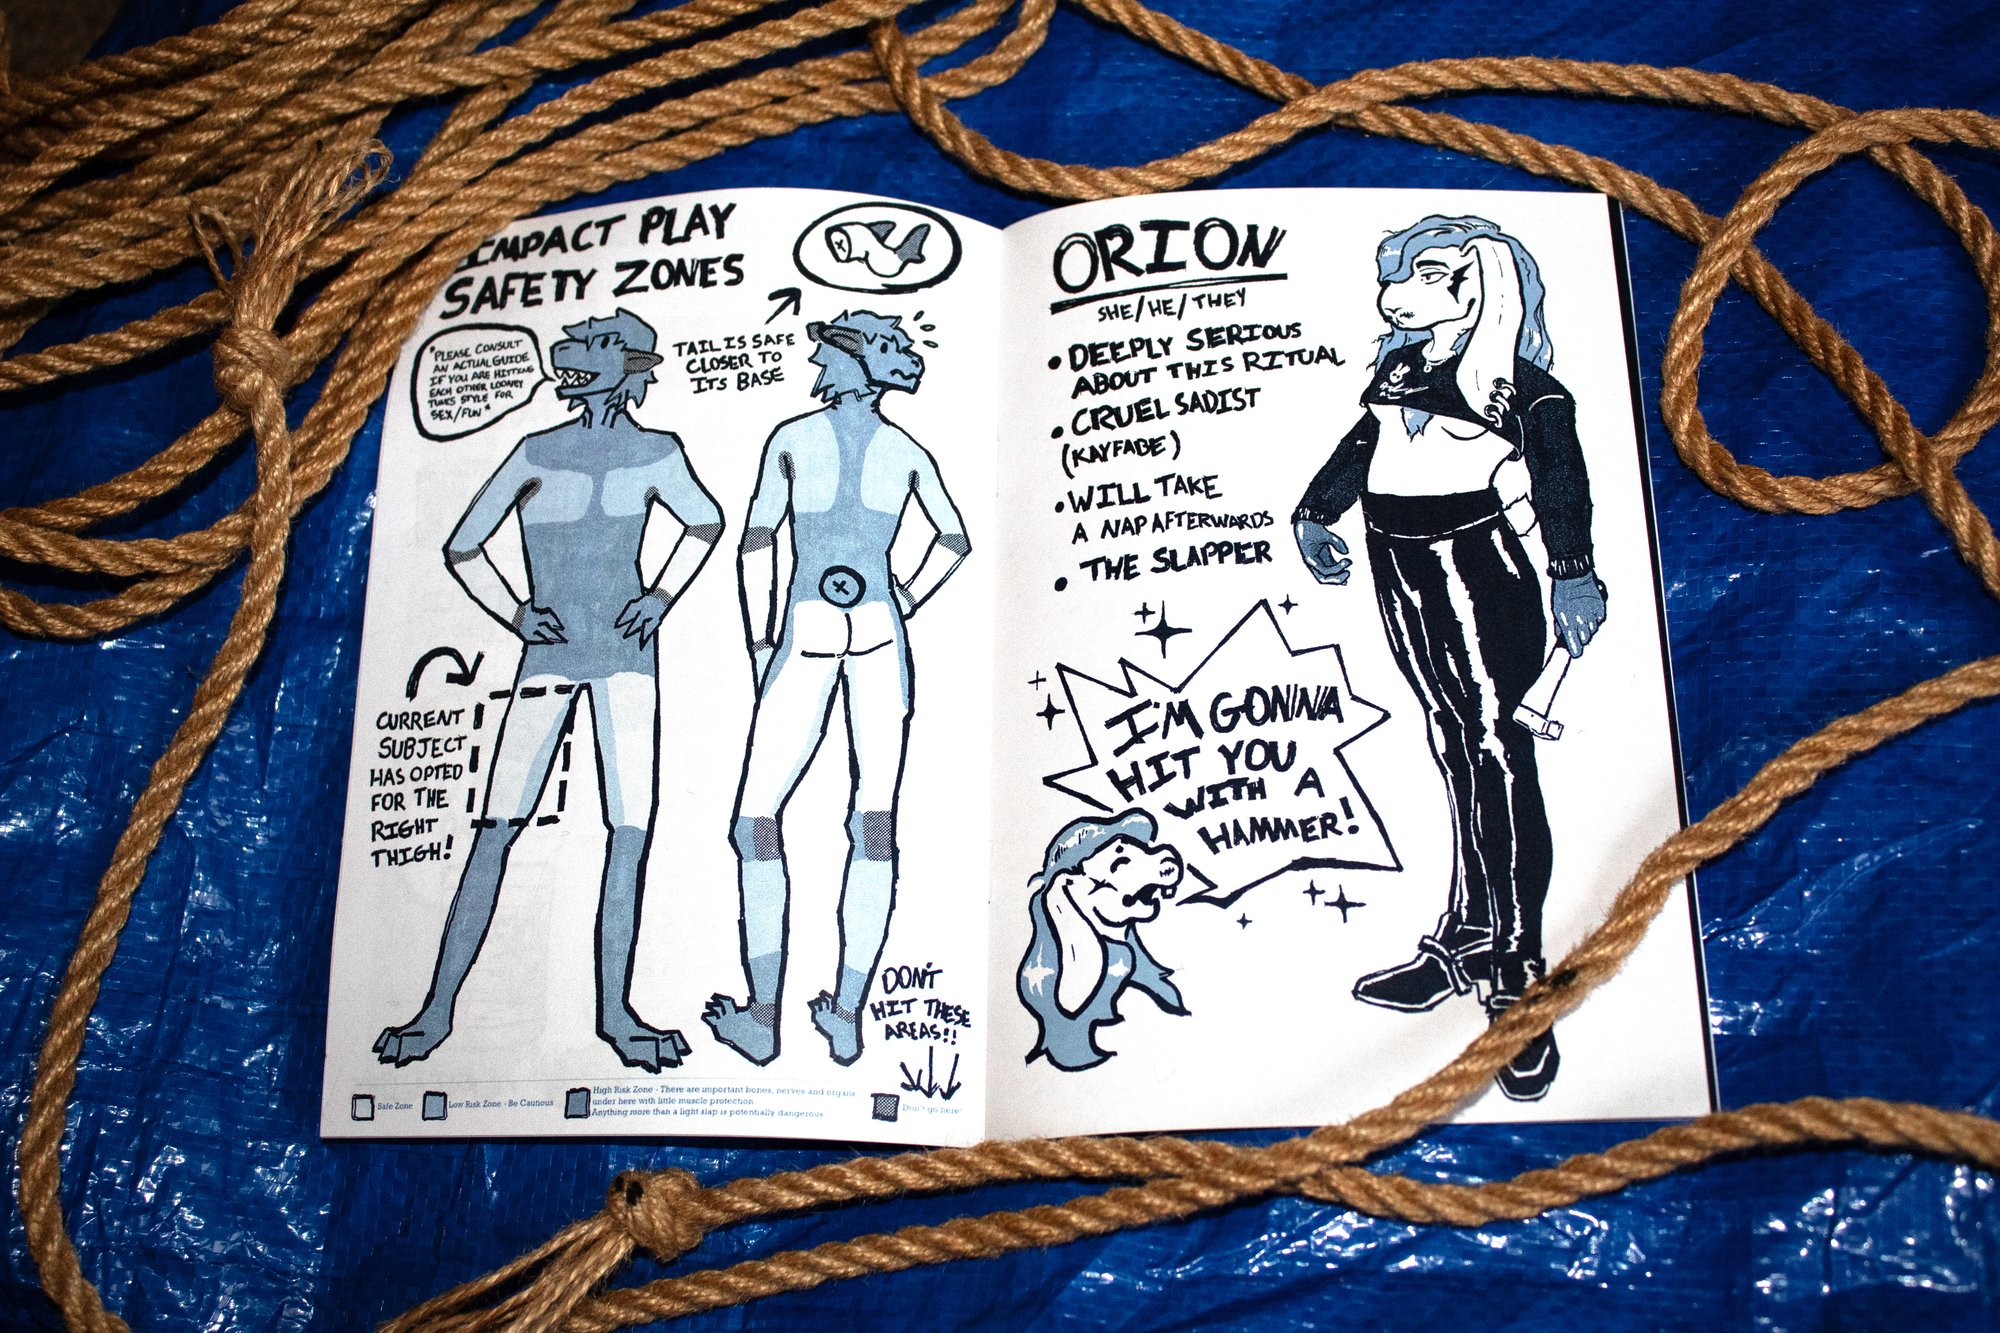 IMPACT PLAY
SAFETY ZONES
"PLEASE CONSULT
AN ACTUAL GUIDE
IF YOU ARE HITTING
EACH OTHER LOONEY
TUNES STYLE FOR
SEX/FUN"
TAIL IS SAFE
CLOSER TO
ITS BASE
CURRENT
SUBJECT
HAS OPTED
FOR THE
RIGHT
THIGH!
DON'T
HIT THESE
AREAS!!
Safe Zone
Low Risk Zone - Be Cautious
High Risk Zone - There are important bones, nerves and organs
under here with little muscle protection
Anything more than a light slap is potentially dangerous
Don't go here!
ORION
SHE/HE/THEY
• DEEPLY SERIOUS
ABOUT THIS RITUAL
• CRUEL SADIST
(KAYFABE)
• WILL TAKE
A NAP AFTERWARDS
• THE SLAPPER
I'M GONNA
HIT YOU
WITH A
HAMMER!